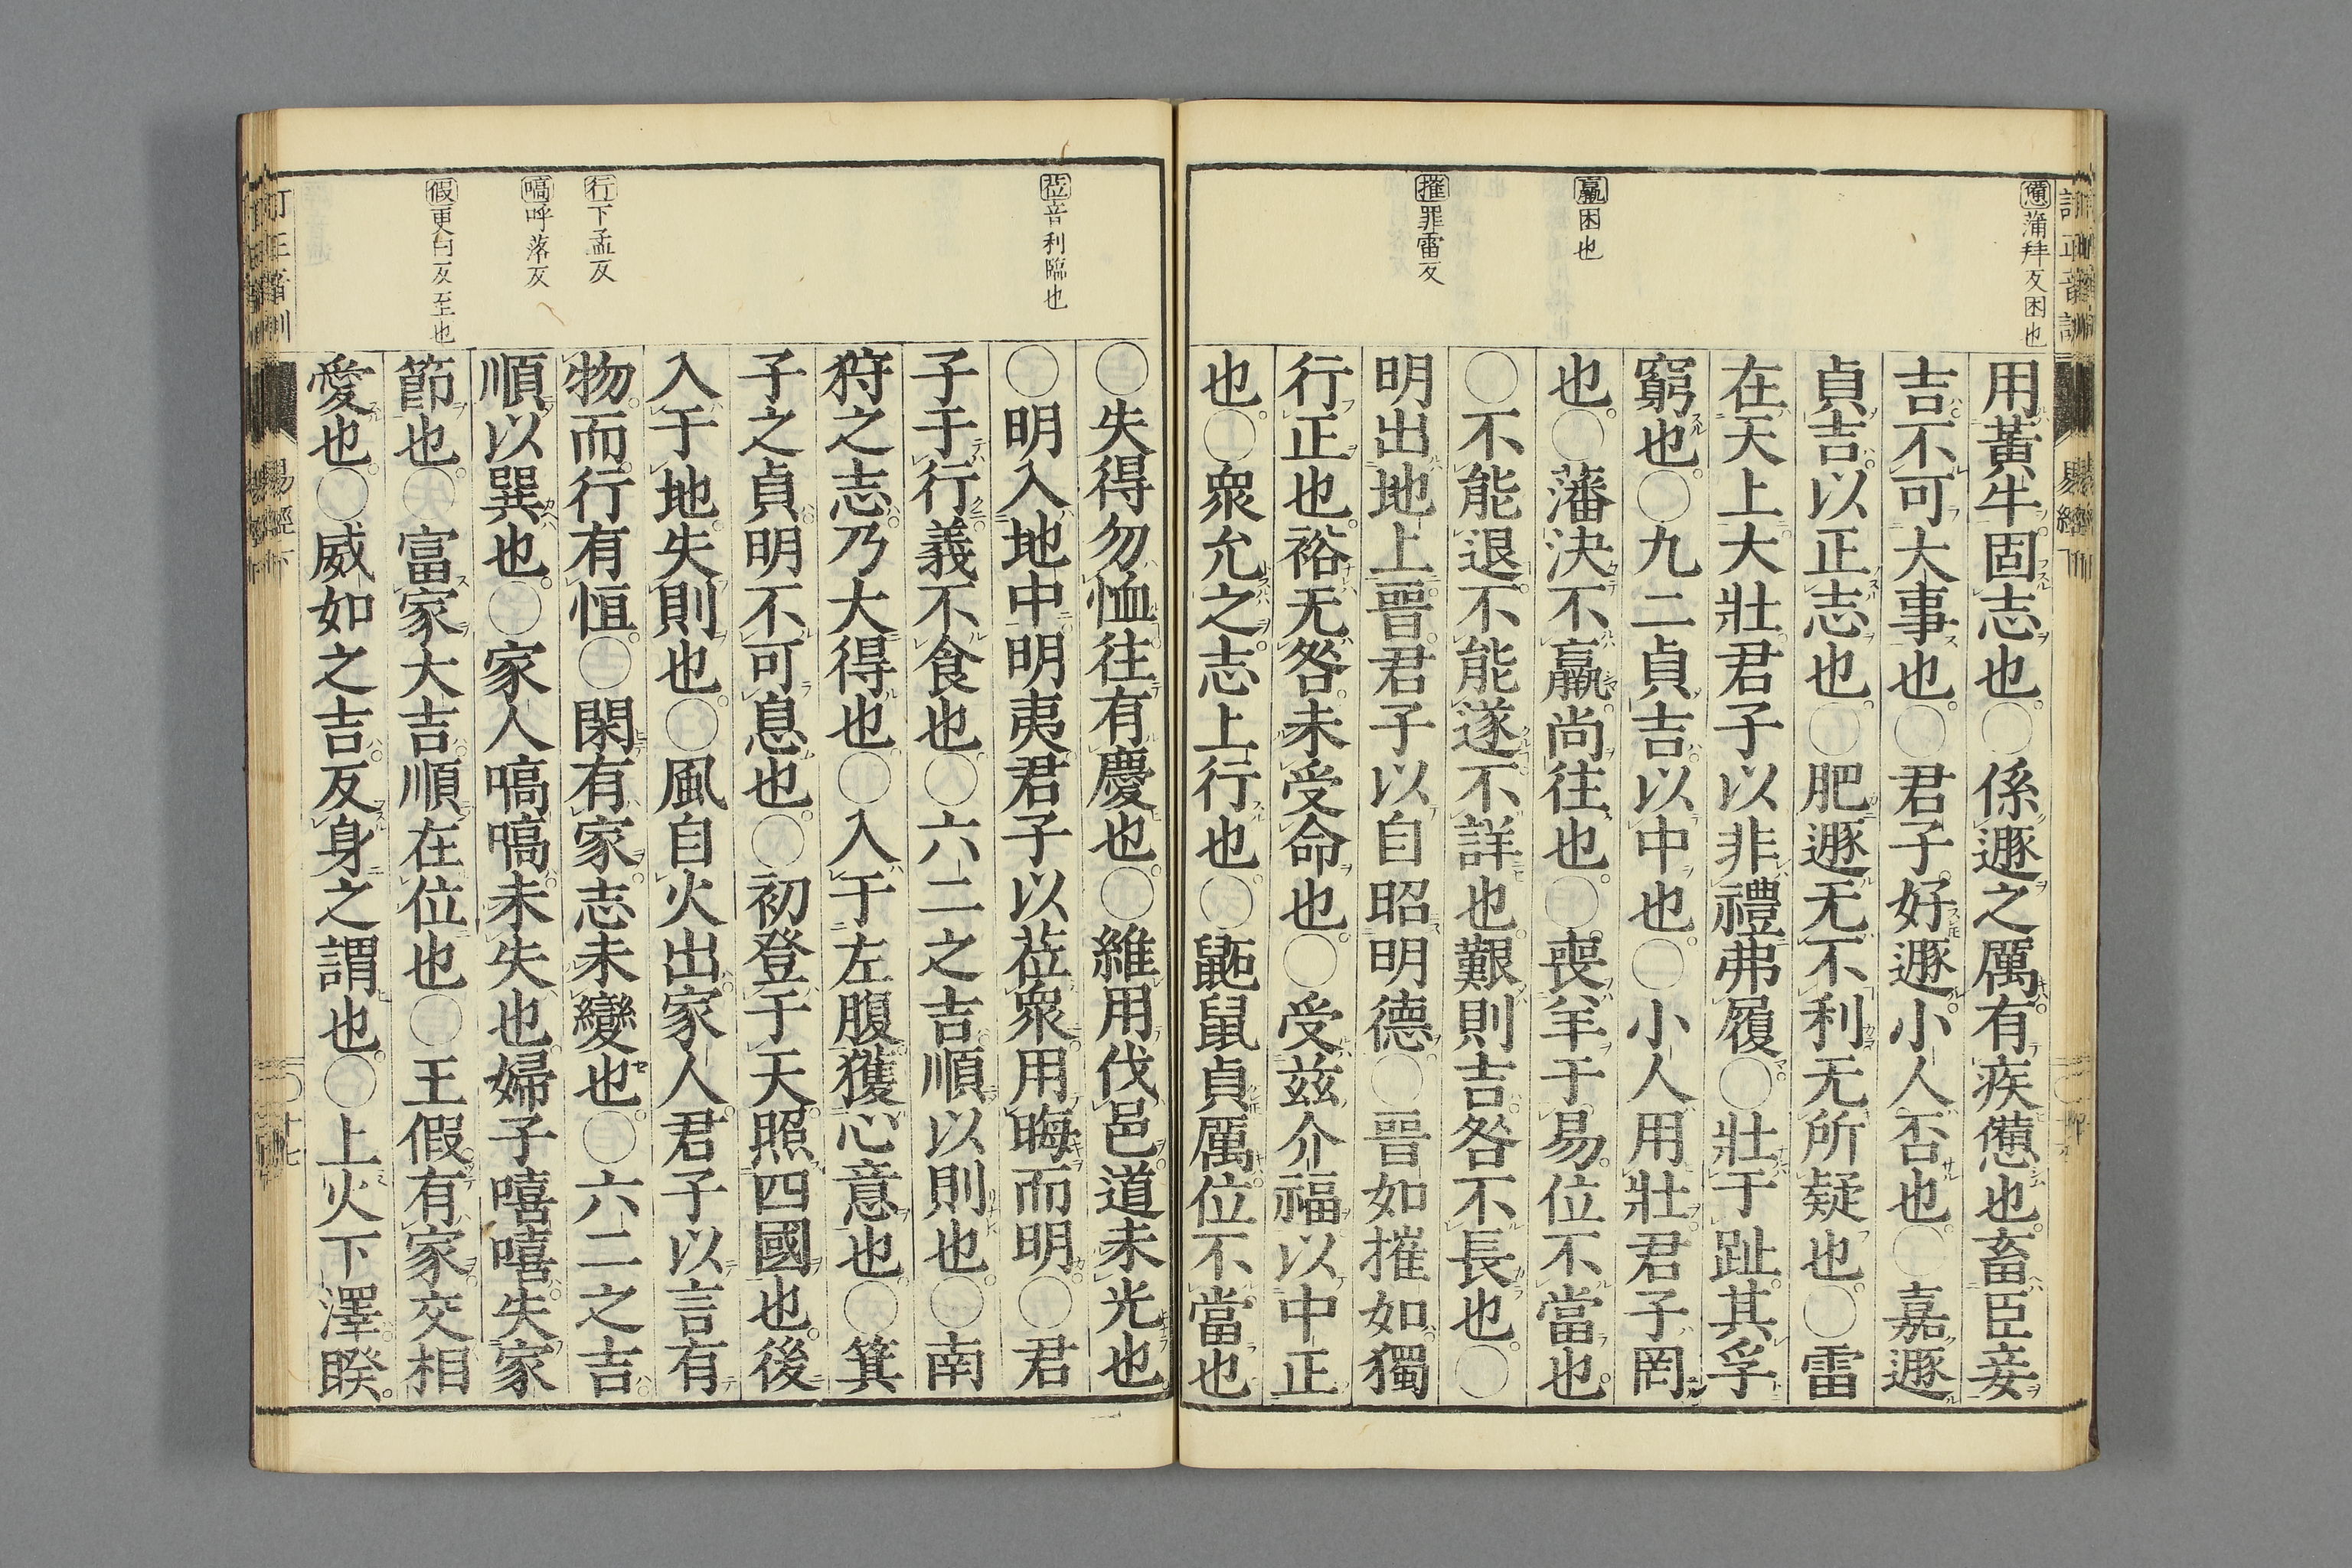 憊蒲拜反困也
羸困也
摧罪雷反
用黃牛固志也〇係遯之厲有疾憊也畜臣妾
吉不可大事也〇君子好遯小人否也〇嘉遯
貞吉以正志也〇肥遯无不利无所疑也〇雷
在天上大壯君子以非禮弗履〇壯于趾其孚
窮也〇九二貞吉以中也〇小人用壯君子罔
也〇藩決不羸尚往也〇喪羊于易位不當也
〇不能退不能遂不詳也艱則吉咎不長也〇
明出地上晉君子以自昭明德〇晉如摧如獨
行正也裕无咎未受命也〇受兹介福以中正
也〇衆允之志上行也〇鼫鼠貞厲位不當也
莅音利臨也
行下孟反
嗃呼落反
假更白反至也
〇失得勿恤往有慶也〇維用伐邑道未光也
〇明入地中明夷君子以莅衆用晦而明〇君
子于行義不食也〇六二之吉順以則也〇南
狩之志乃大得也〇入于左腹獲心意也〇箕
子之貞明不可息也〇初登于天照四國也後
入于地失則也〇風自火出家人君子以言有
物而行有恒〇閑有家志未變也〇六二之吉
順以巽也〇家人嗃嗃未失也婦子嘻嘻失家
節也〇富家大吉順在位也〇王假有家交相
愛也〇威如之吉反身之謂也〇上火下澤睽
易經下
十七